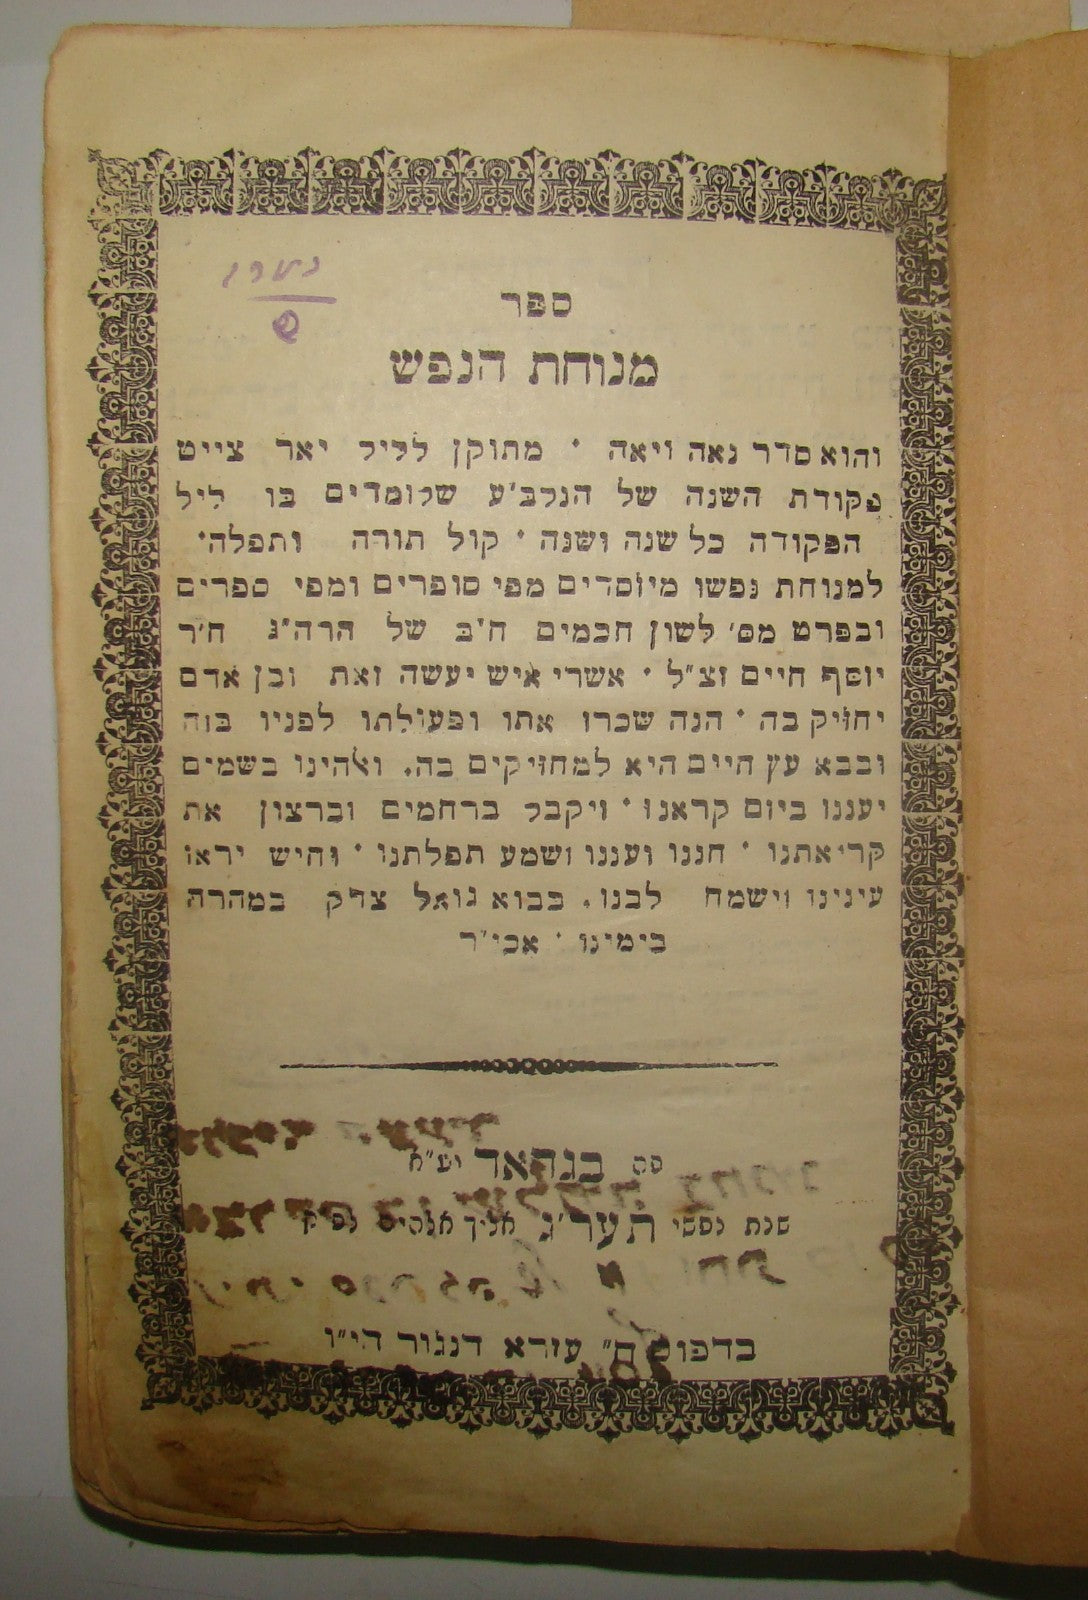 ספר
מנוחת הנפש
והוא סדר נאה ויאה · מתוקן לליל יאר צייט
פקודת השנה של הנלב׳ע שלומדים בו ליל
הפקודה כל שנה ושנה · קול תורה ותפלה·
למנוחת נפשו מיוסדים מפי סופרים ומפי ספרים
ובפרט מס׳ לשון חכמים ח״ב של הרה״ג ח׳ר
יוסף חיים זצ״ל · אשרי איש יעשה זאת ובן אדם
יחזיק בה · הנה שכרו אתו ופעולתו לפניו בזה
ובבא עץ חיים היא למחזיקים בה. ואלהינו בשמים
יעננו ביום קראנו · ויקבל ברחמים וברצון את
קריאתנו · חננו ועננו ושמע תפלתנו · וחיש יראו
עינינו וישמח לבנו. בבוא גואל צדק במהרה
בימינו · אכי״ר
פה בגדאד יע״ה
שנת נפשי תער׳ג אליך אלהים
בדפוס עזרא דנגור הי״ו